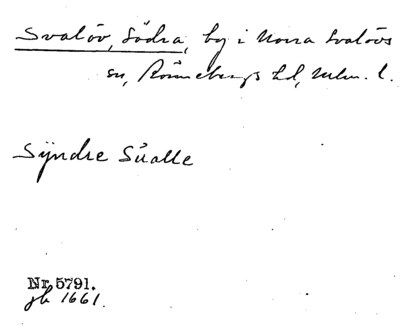 Svalöv, Södra, by i Norra Svalövs
sn, Rönnebergs hd, Mlm. l.
Syndre Sualle
Nr. 5791.
jb 1661.